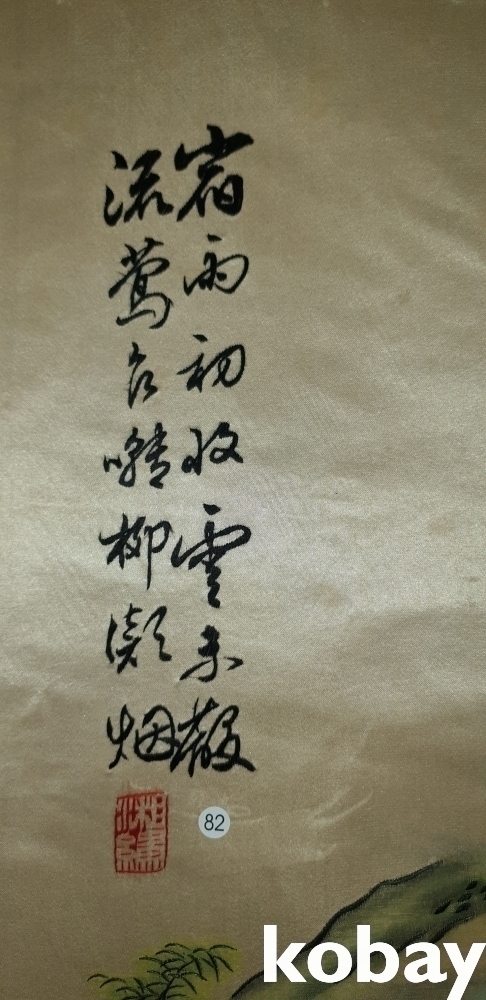 宿雨初收雲未散
流鶯百囀柳凝烟
湘繡
82
kobay